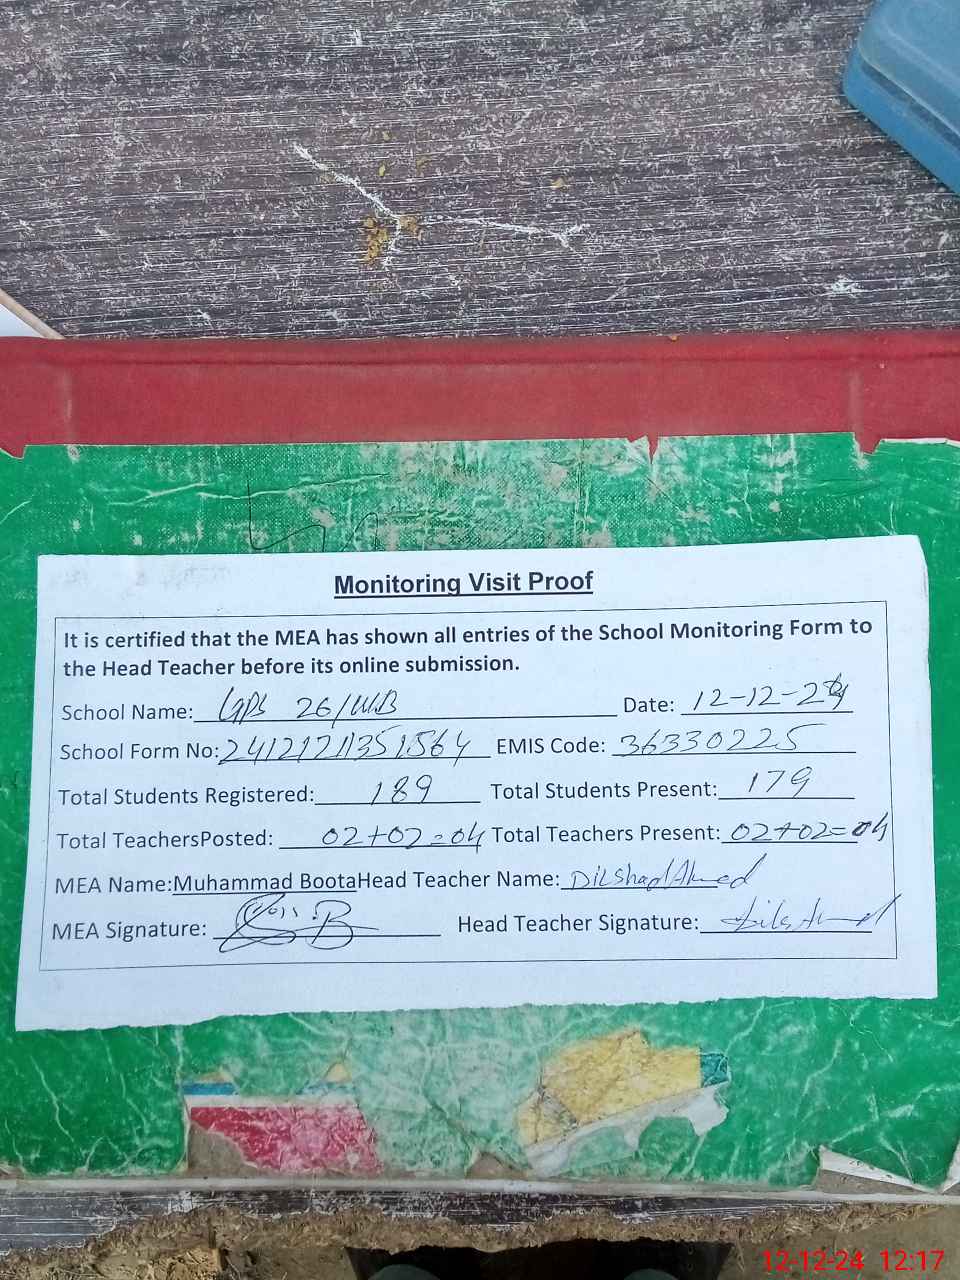 Monitoring Visit Proof
It is certified that the MEA has shown all entries of the School Monitoring Form to
the Head Teacher before its online submission.
School Name: GPS 26/W.B Date: 12-12-24
School Form No: 24121211351564 EMIS Code: 36330225
Total Students Registered: 189 Total Students Present: 179
Total TeachersPosted: 02+02=04 Total Teachers Present: 02+02=04
MEA Name:Muhammad BootaHead Teacher Name: Dilshad Ahmed
MEA Signature: Head Teacher Signature:
12-12-24 12:17